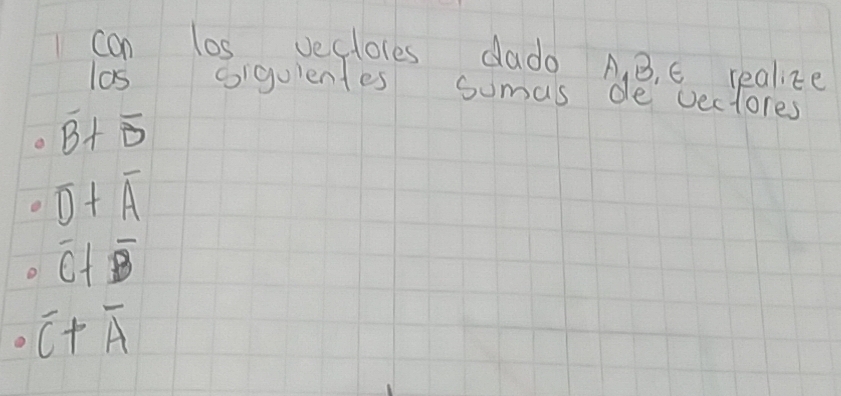 1 con los vectores dado A, B, C realize
las siguientes sumas de vectores
• B̄ + D̄
• D̄ + Ā
• C̄ + B̄
• C̄ + Ā